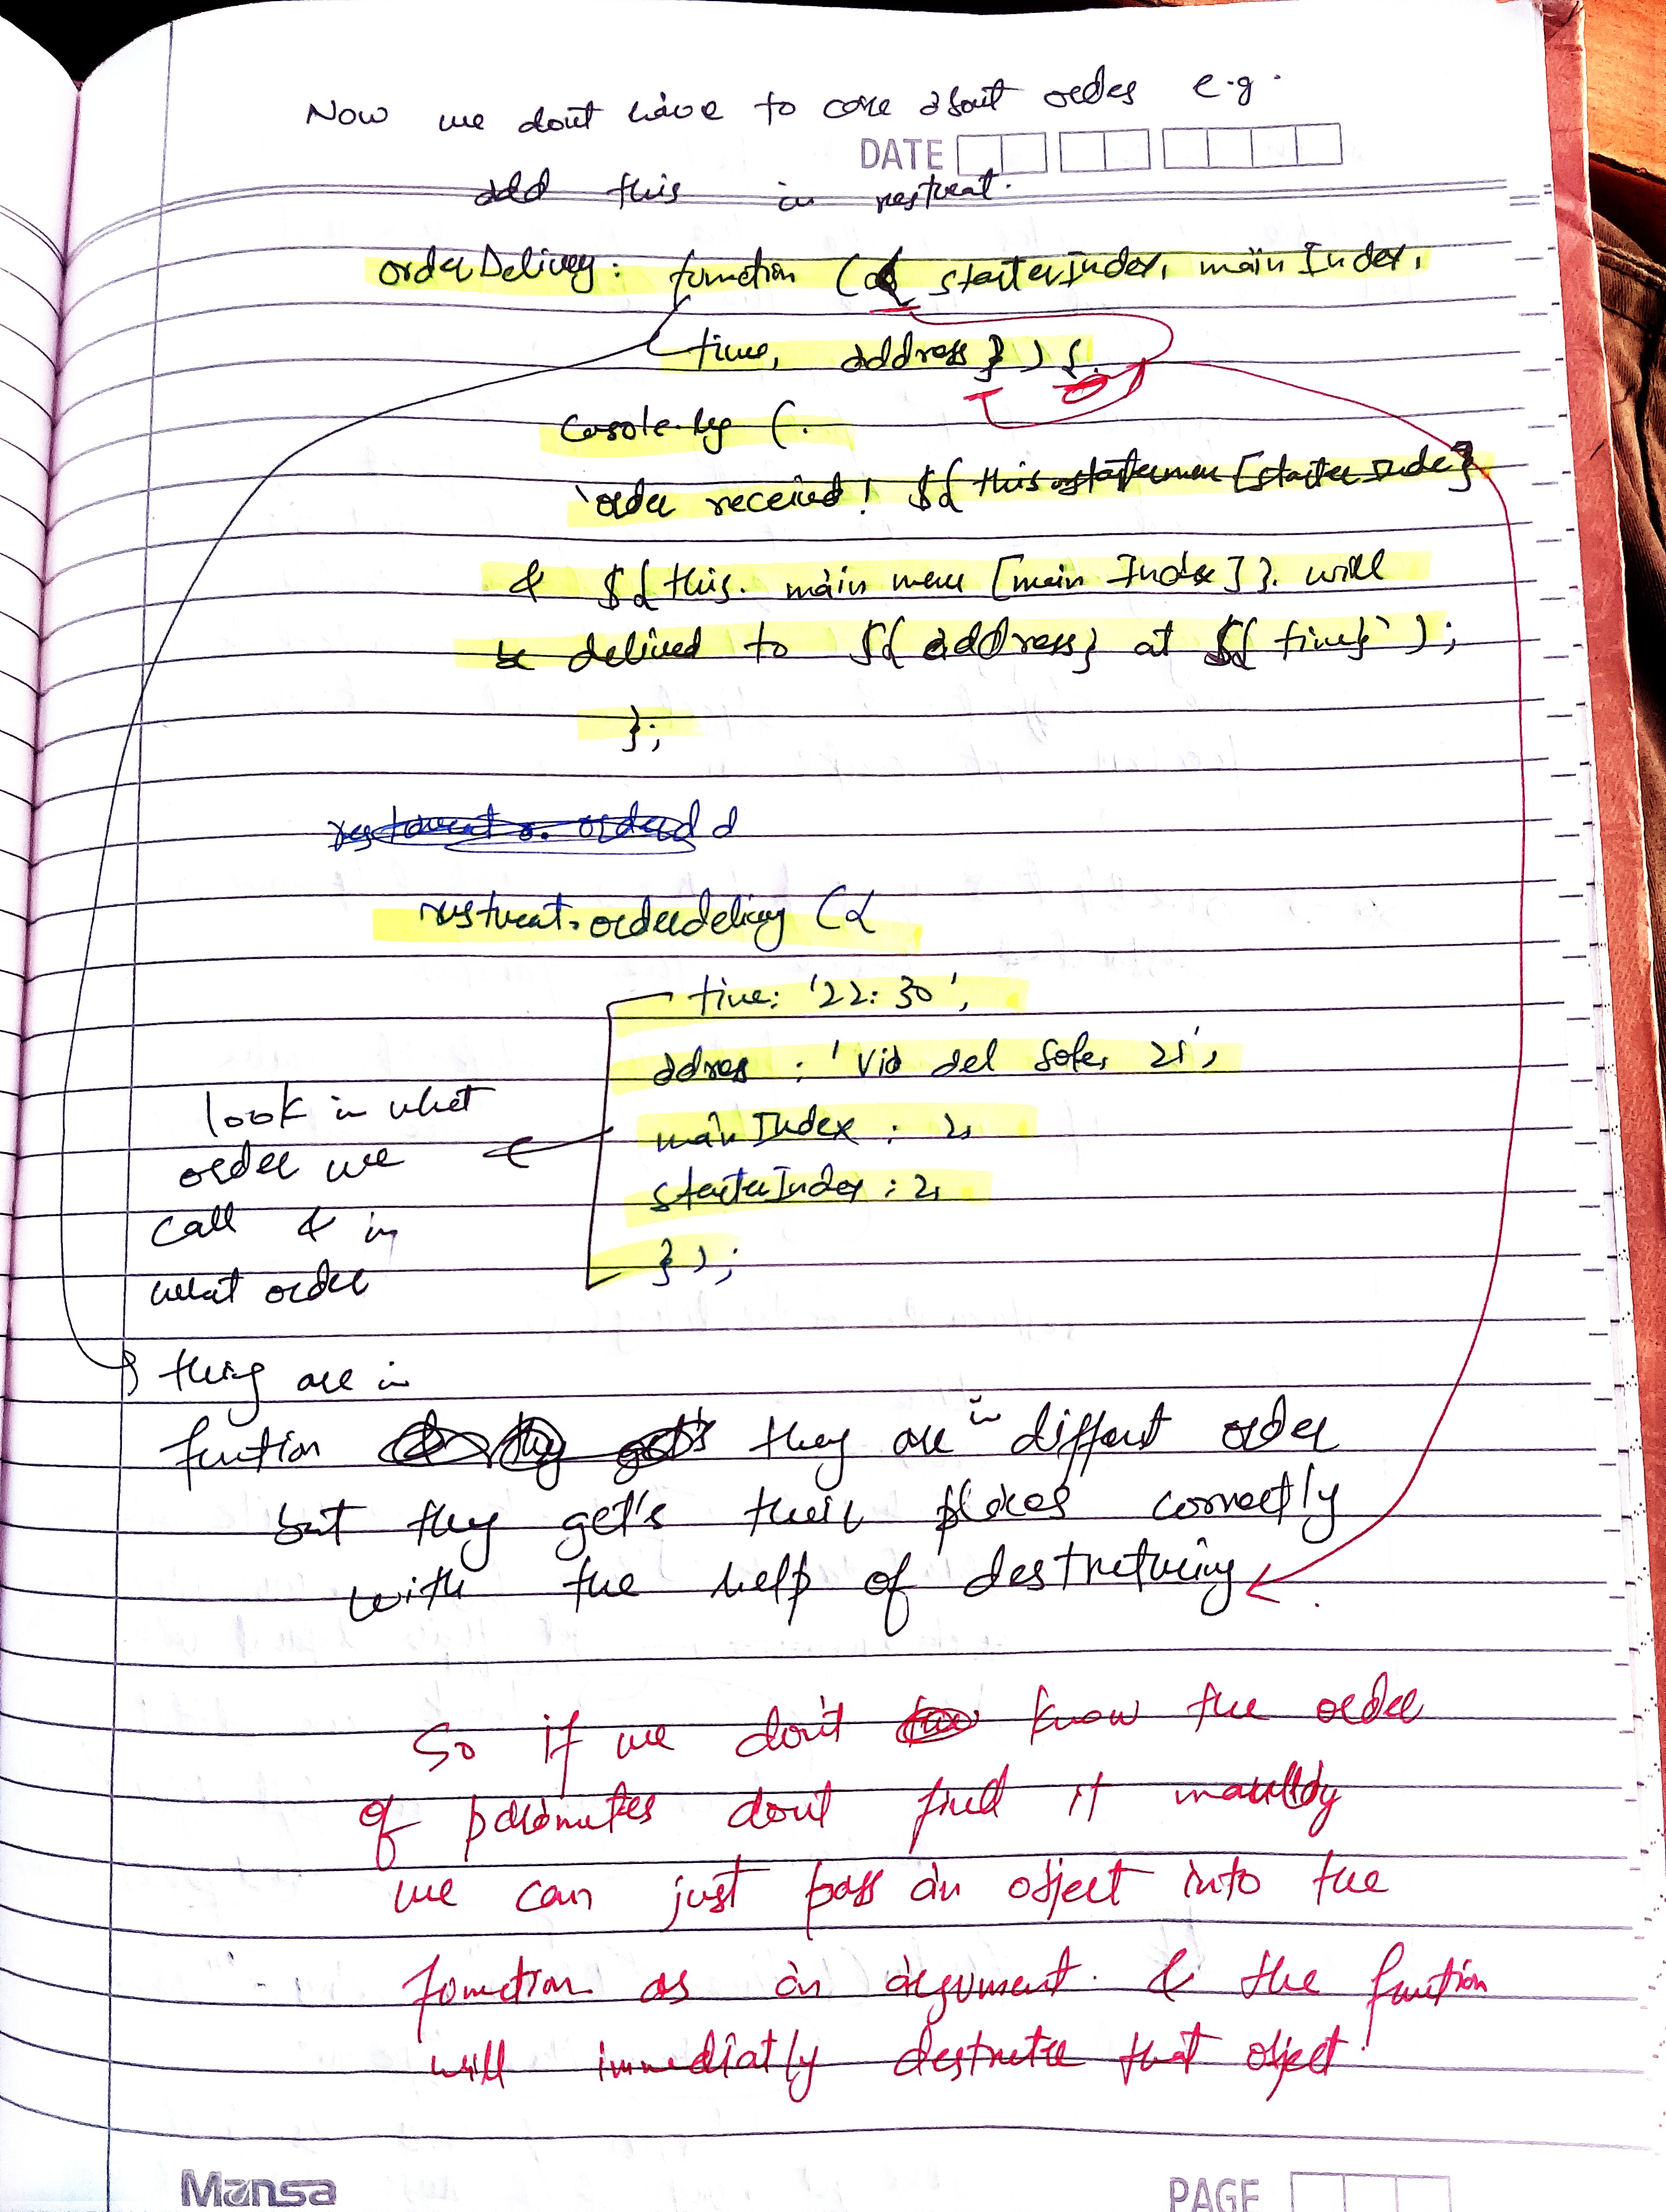 Now we dont have to care about order e.g.
DATE
add this in restrent.
orderDelivery: function ({ starterIndex, mainIndex,
time, address } ) {
Console.log (
`order received! ${ this.startermenu [starterInde]}
& ${ this. main menu [main Index] }. will
be delived to ${ address} at ${ time}` );
};
restrent.orderdelivey ({
time: '22:30',
adres : 'Via del Sole, 21',
mainIndex : 2,
starterIndex : 2,
});
look in what
order we
call & in
what order
thing are in
function they are in differt order
but they get's their places correctly
with the help of destrcturing
So if we don't know the order
of parametes don't find it manully
we can just pass an object into the
function as an argument. & the function
will immediatly destructre that object
Mansa
PAGE